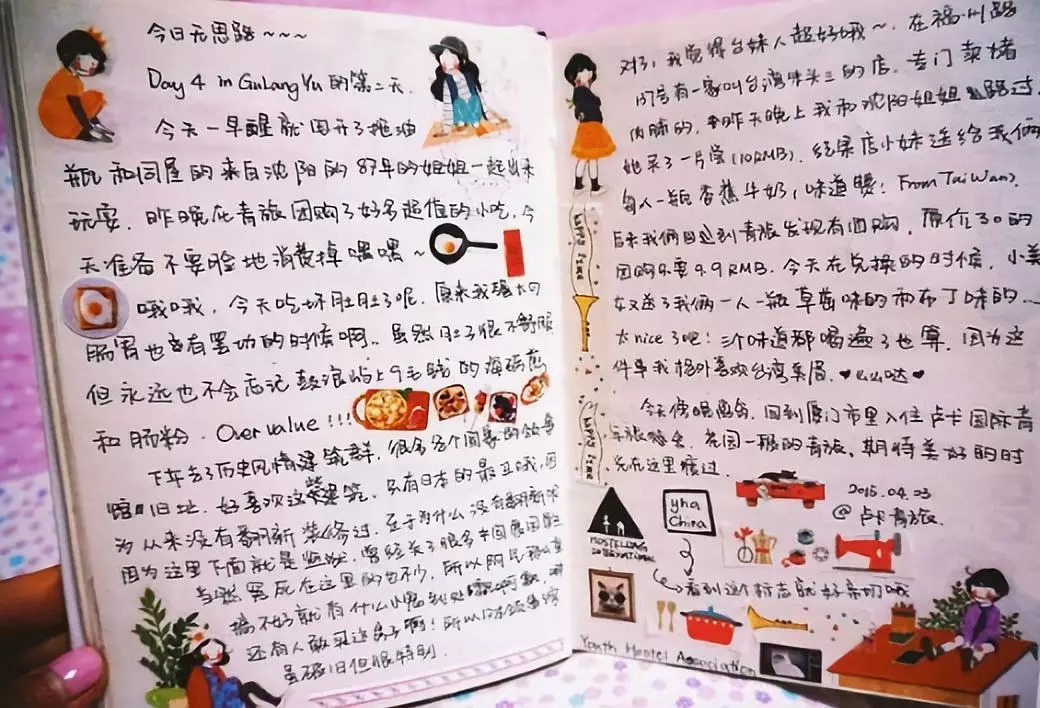 今日无思路~~~
Day 4 in GuLangYu 的第二天.
今天一早醒就用开了拖油
瓶和同屋的来自沈阳的87年的姐姐一起出来
玩耍. 昨晚在青旅团购了好多超值的小吃, 今
天准备不要脸地消费掉 嘿嘿~
哦哦, 今天吃坏肚肚了呢. 原来我强大的
肠胃也会有罢功的时候啊.. 虽然肚子很不舒服
但永远也不会忘记鼓浪屿上9毛钱的海蛎煎
和肠粉. Over value !!!
下午去了历史风情建筑群, 很多各个国家的领事
馆旧址. 好喜欢这些建筑. 只有日本的最丑哦, 因
为从来没有翻新装修过. 至于为什么没有翻新呢
因为这里下面就是监狱. 曾经关了很多中国爱国
当然冤死在这里的也不少, 所以阴
搞不好就有什么小鬼到处
还有人敢买这房子啊! 所以日本领事馆
虽破旧但很特别.
对了, 我觉得台妹人超好哦~. 在福州路
137号有一家叫台湾味头三的店. 专门卖猪
肉脯的. 昨天晚上我和沈阳姐姐路过.
她买了一片尝(10RMB). 结果店小妹送给我俩
每人一瓶香蕉牛奶(味道嘿: From TaiWan).
后来我俩回到青旅发现有团购, 原价30的
团购只要9.9RMB. 今天在兑换的时候, 小美
女又送了我俩一人一瓶草莓味的和布丁味的...
太nice了吧! 三个味道都喝遍了也算. 因为这
件事我格外喜欢台湾菜眉. ♥么么哒♥
今天傍晚, 回到厦门市里入住卢卡国际青
年旅舍. 花园一般的青旅. 期待美好的时
光在这里度过.
2015.04.23
@卢卡青旅.
yha
China
HOSTELLING
INTERNATIONAL
看到这个标志就好亲切哦
Youth Hostel Association